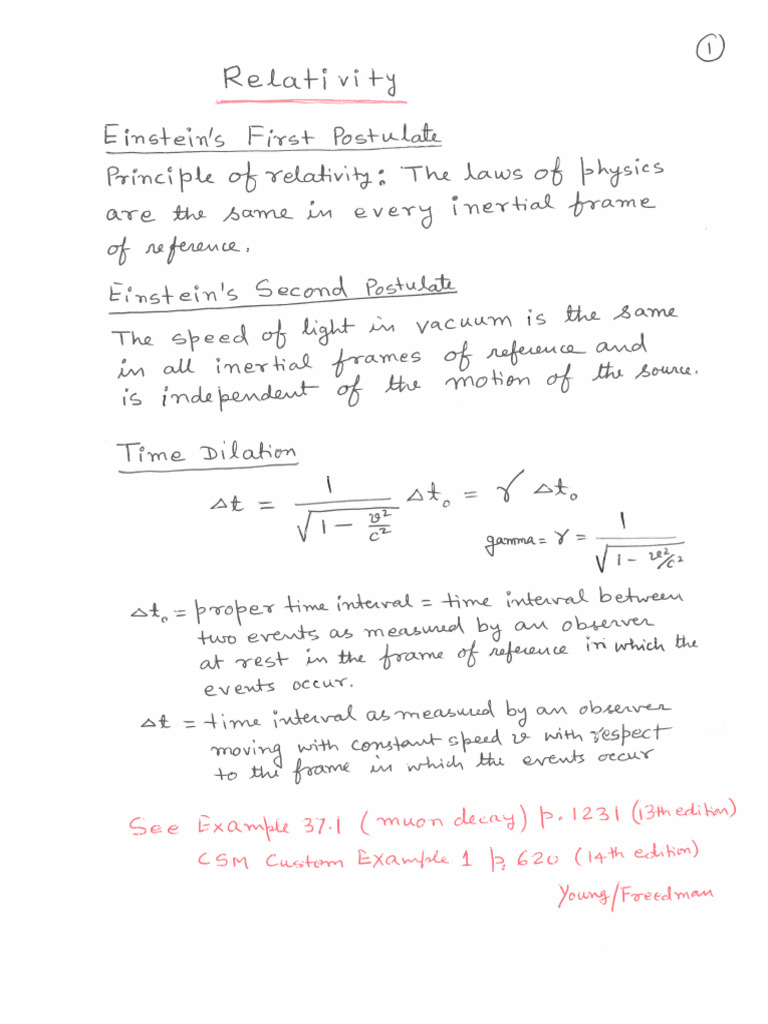 1
Relativity
Einstein's First Postulate
Principle of relativity: The laws of physics
are the same in every inertial frame
of reference.
Einstein's Second Postulate
The speed of light in vacuum is the same
in all inertial frames of reference and
is independent of the motion of the source.
Time Dilation
Δt = 1/√(1 - v²/c²) Δt₀ = γ Δt₀
gamma = γ = 1/√(1 - v²/c²)
Δt₀ = proper time interval = time interval between
two events as measured by an observer
at rest in the frame of reference in which the
events occur.
Δt = time interval as measured by an observer
moving with constant speed v with respect
to the frame in which the events occur
See Example 37.1 (muon decay) p. 1231 (13th edition)
CSM Custom Example 1 p. 620 (14th edition)
Young/Freedman